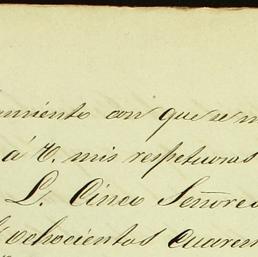 con que se
á V. mis respetuosas
L. Cinco Señores
ochocientos cuaren